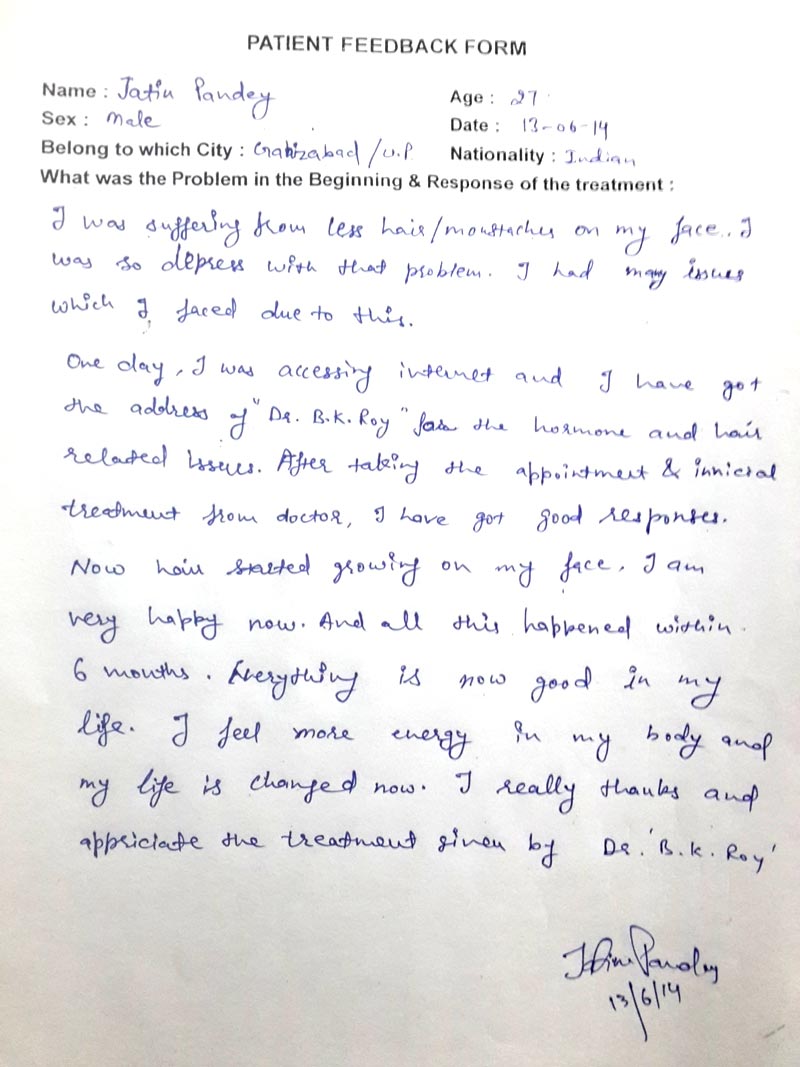 PATIENT FEEDBACK FORM
Name : Jatin Pandey Age : 27
Sex : Male Date : 13-06-14
Belong to which City : Gahizabad / U.P Nationality : Indian
What was the Problem in the Beginning & Response of the treatment :
I was suffering from less hair/moustaches on my face. I
was so depress with that problem. I had many issues
which I faced due to this.
One day, I was accessing internet and I have got
the address of "Dr. B.K. Roy" for the hormone and hair
related issues. After taking the appointment & innicial
treatment from doctor, I have got good responses.
Now hair started growing on my face. I am
very happy now. And all this happened within
6 months. Everything is now good in my
life. I feel more energy in my body and
my life is changed now. I really thanks and
appriciate the treatment given by Dr. 'B.K. Roy'
Jatin Pandey
13/6/14